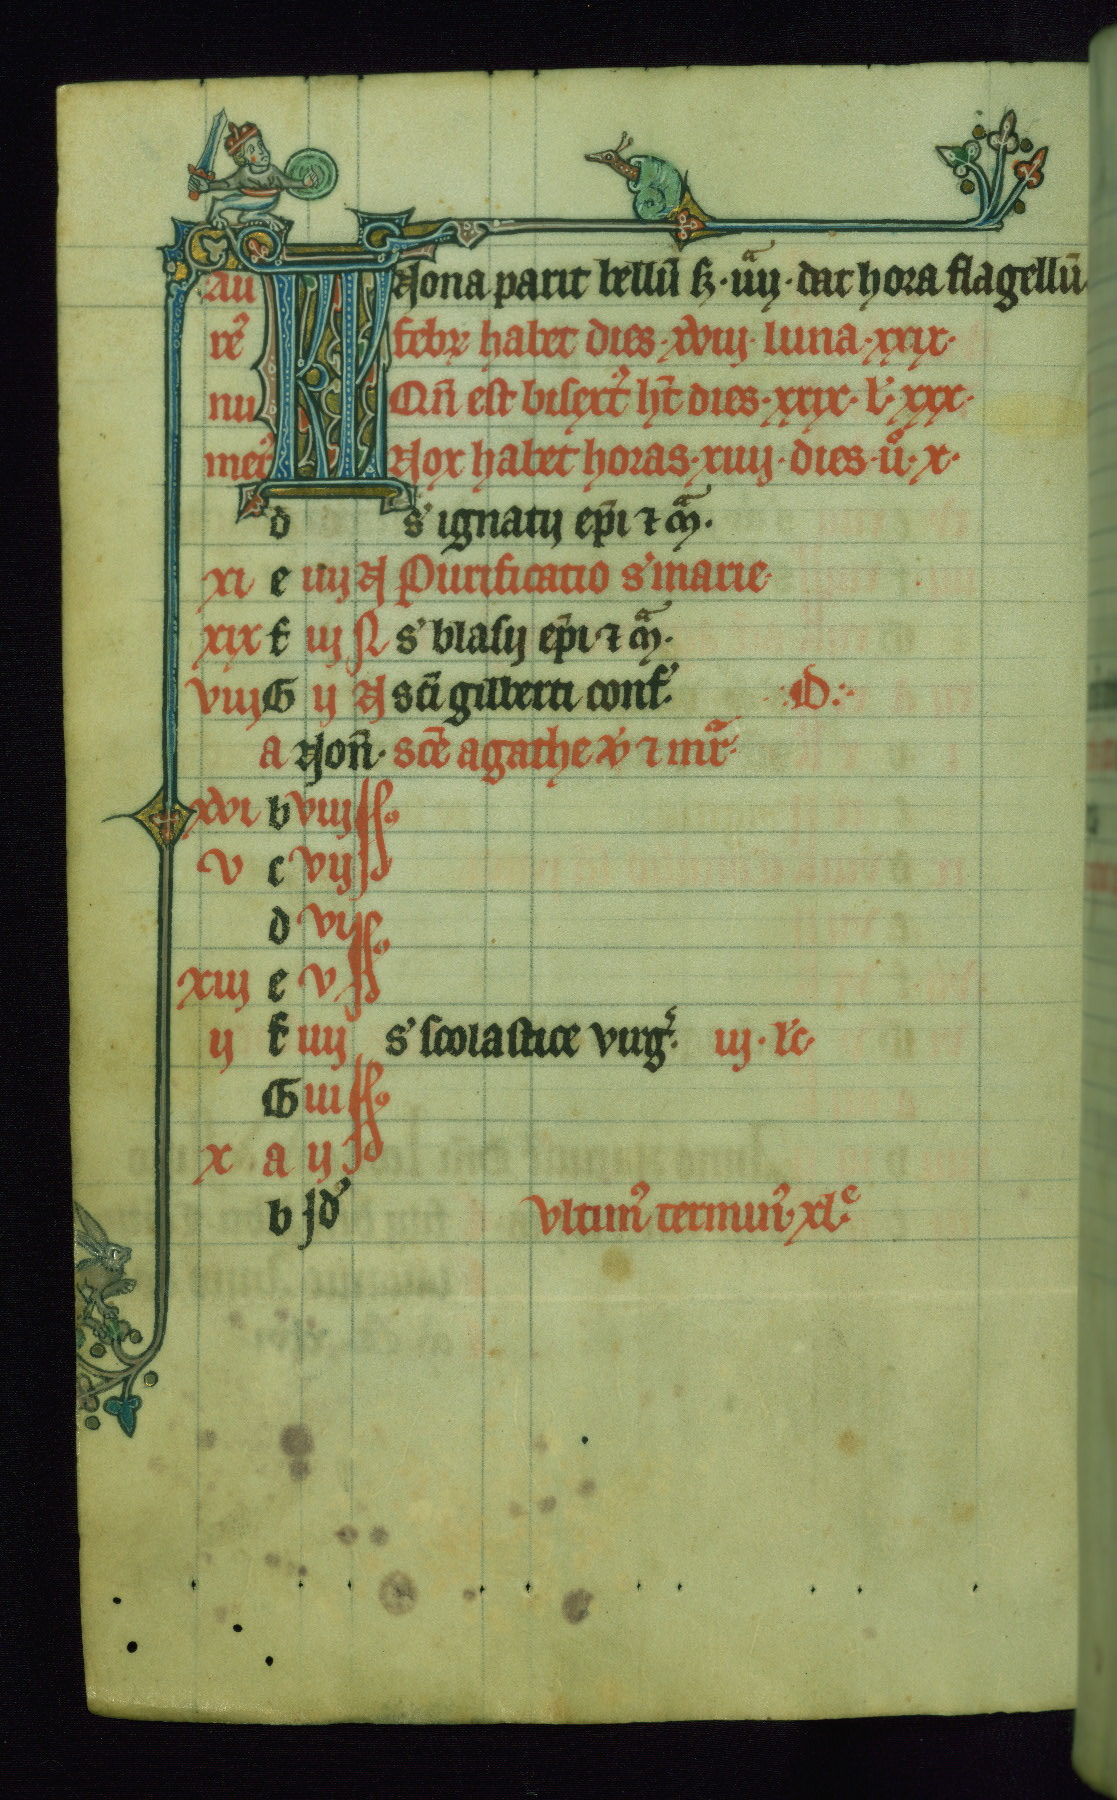 Au KL Nona parit bellũ k̃·iiij·dat hora flagellũ
rẽ febr habet dies·xxviij·luna·xxix·
nu Qñ est bisext' hñt dies·xxix·l'·xxx·
meꝰ Nox habet horas·xiiij·dies·u͛·x·
d s' ignatij ep̃i ⁊ m̃·
xi e iiij N Purificatio s' marie·
xix f iij N s' blasij ep̃i ⁊ m̃·
viij G ij N sc̃i gilberti conf' ·D·
a Noñ· sc̃e agathe v̓ ⁊ mr̃·
xvi b viij
v c vij
d vi
xiij e v
ij f iiij s' scolastice virg̃· iij·l'c·
G iij
x a ij
b jd' vltimꝰ terminꝰ·xlᵉ·